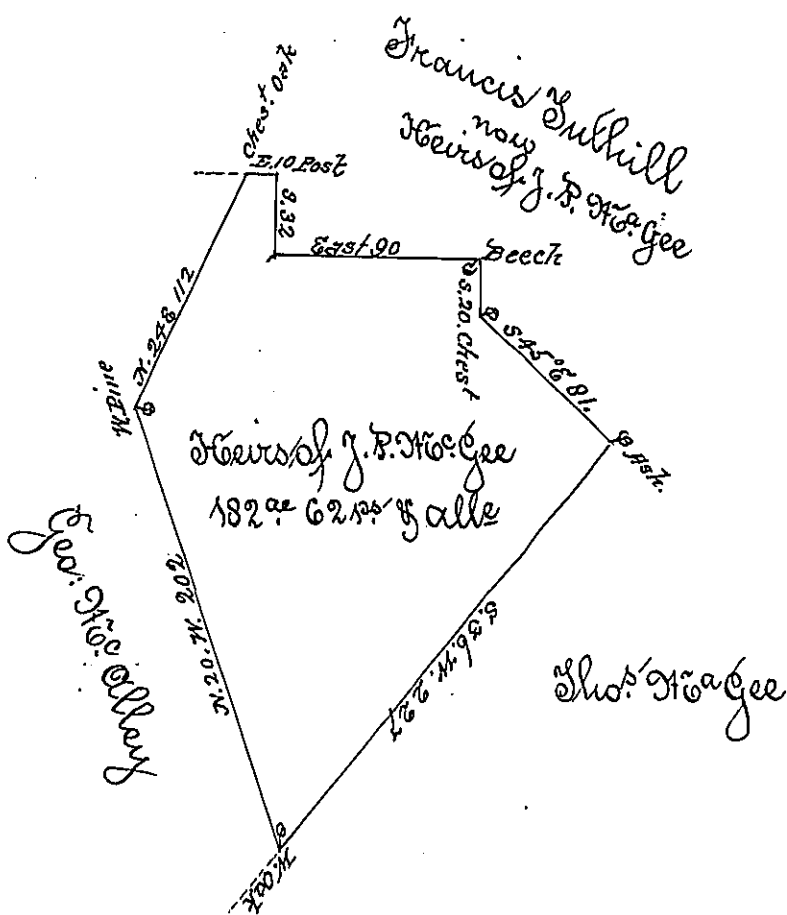 Francis Tuthill
now
Heirs of J. P. McGee
Chest Oak
E. 10 Post
S. 32
East 90
Beech
S. 20. Chest
S 45° E 81.
Ash.
N. 24 E 112
W. Pine
Heirs of J. P. McGee
182 ac 62 ps & alle
Geo: McAlley
N. 20. W. 202
S. 36. W. 227
Thos. McGee
W. Oak